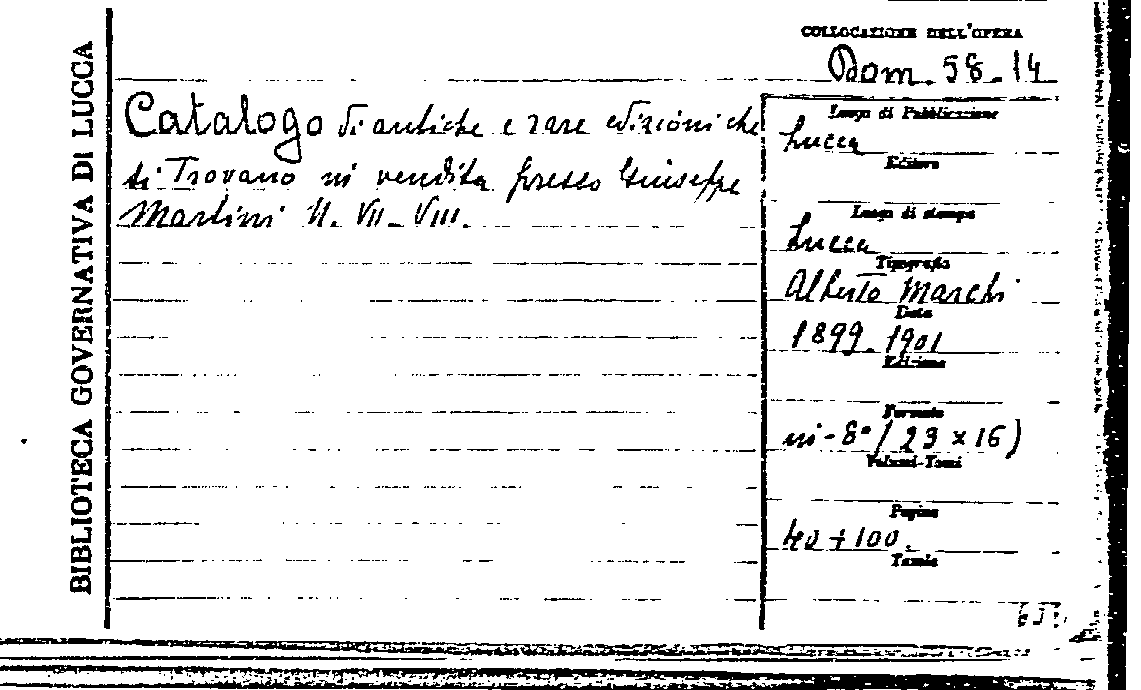 BIBLIOTECA GOVERNATIVA DI LUCCA
COLLOCAZIONE DELL'OPERA
Dom. 58-14
Catalogo di antiche e rare edizioni che
si Trovano in vendita presso Giuseppe
Martini N. VII-VIII.
Luogo di Pubblicazione
Lucca
Editore
Luogo di stampa
Lucca
Tipografia
Alberto Marchi
Data
1899-1901
Edizione
Formato
in-8° (23 x 16)
Volumi-Tomi
Pagine
40 + 100.
Tavole